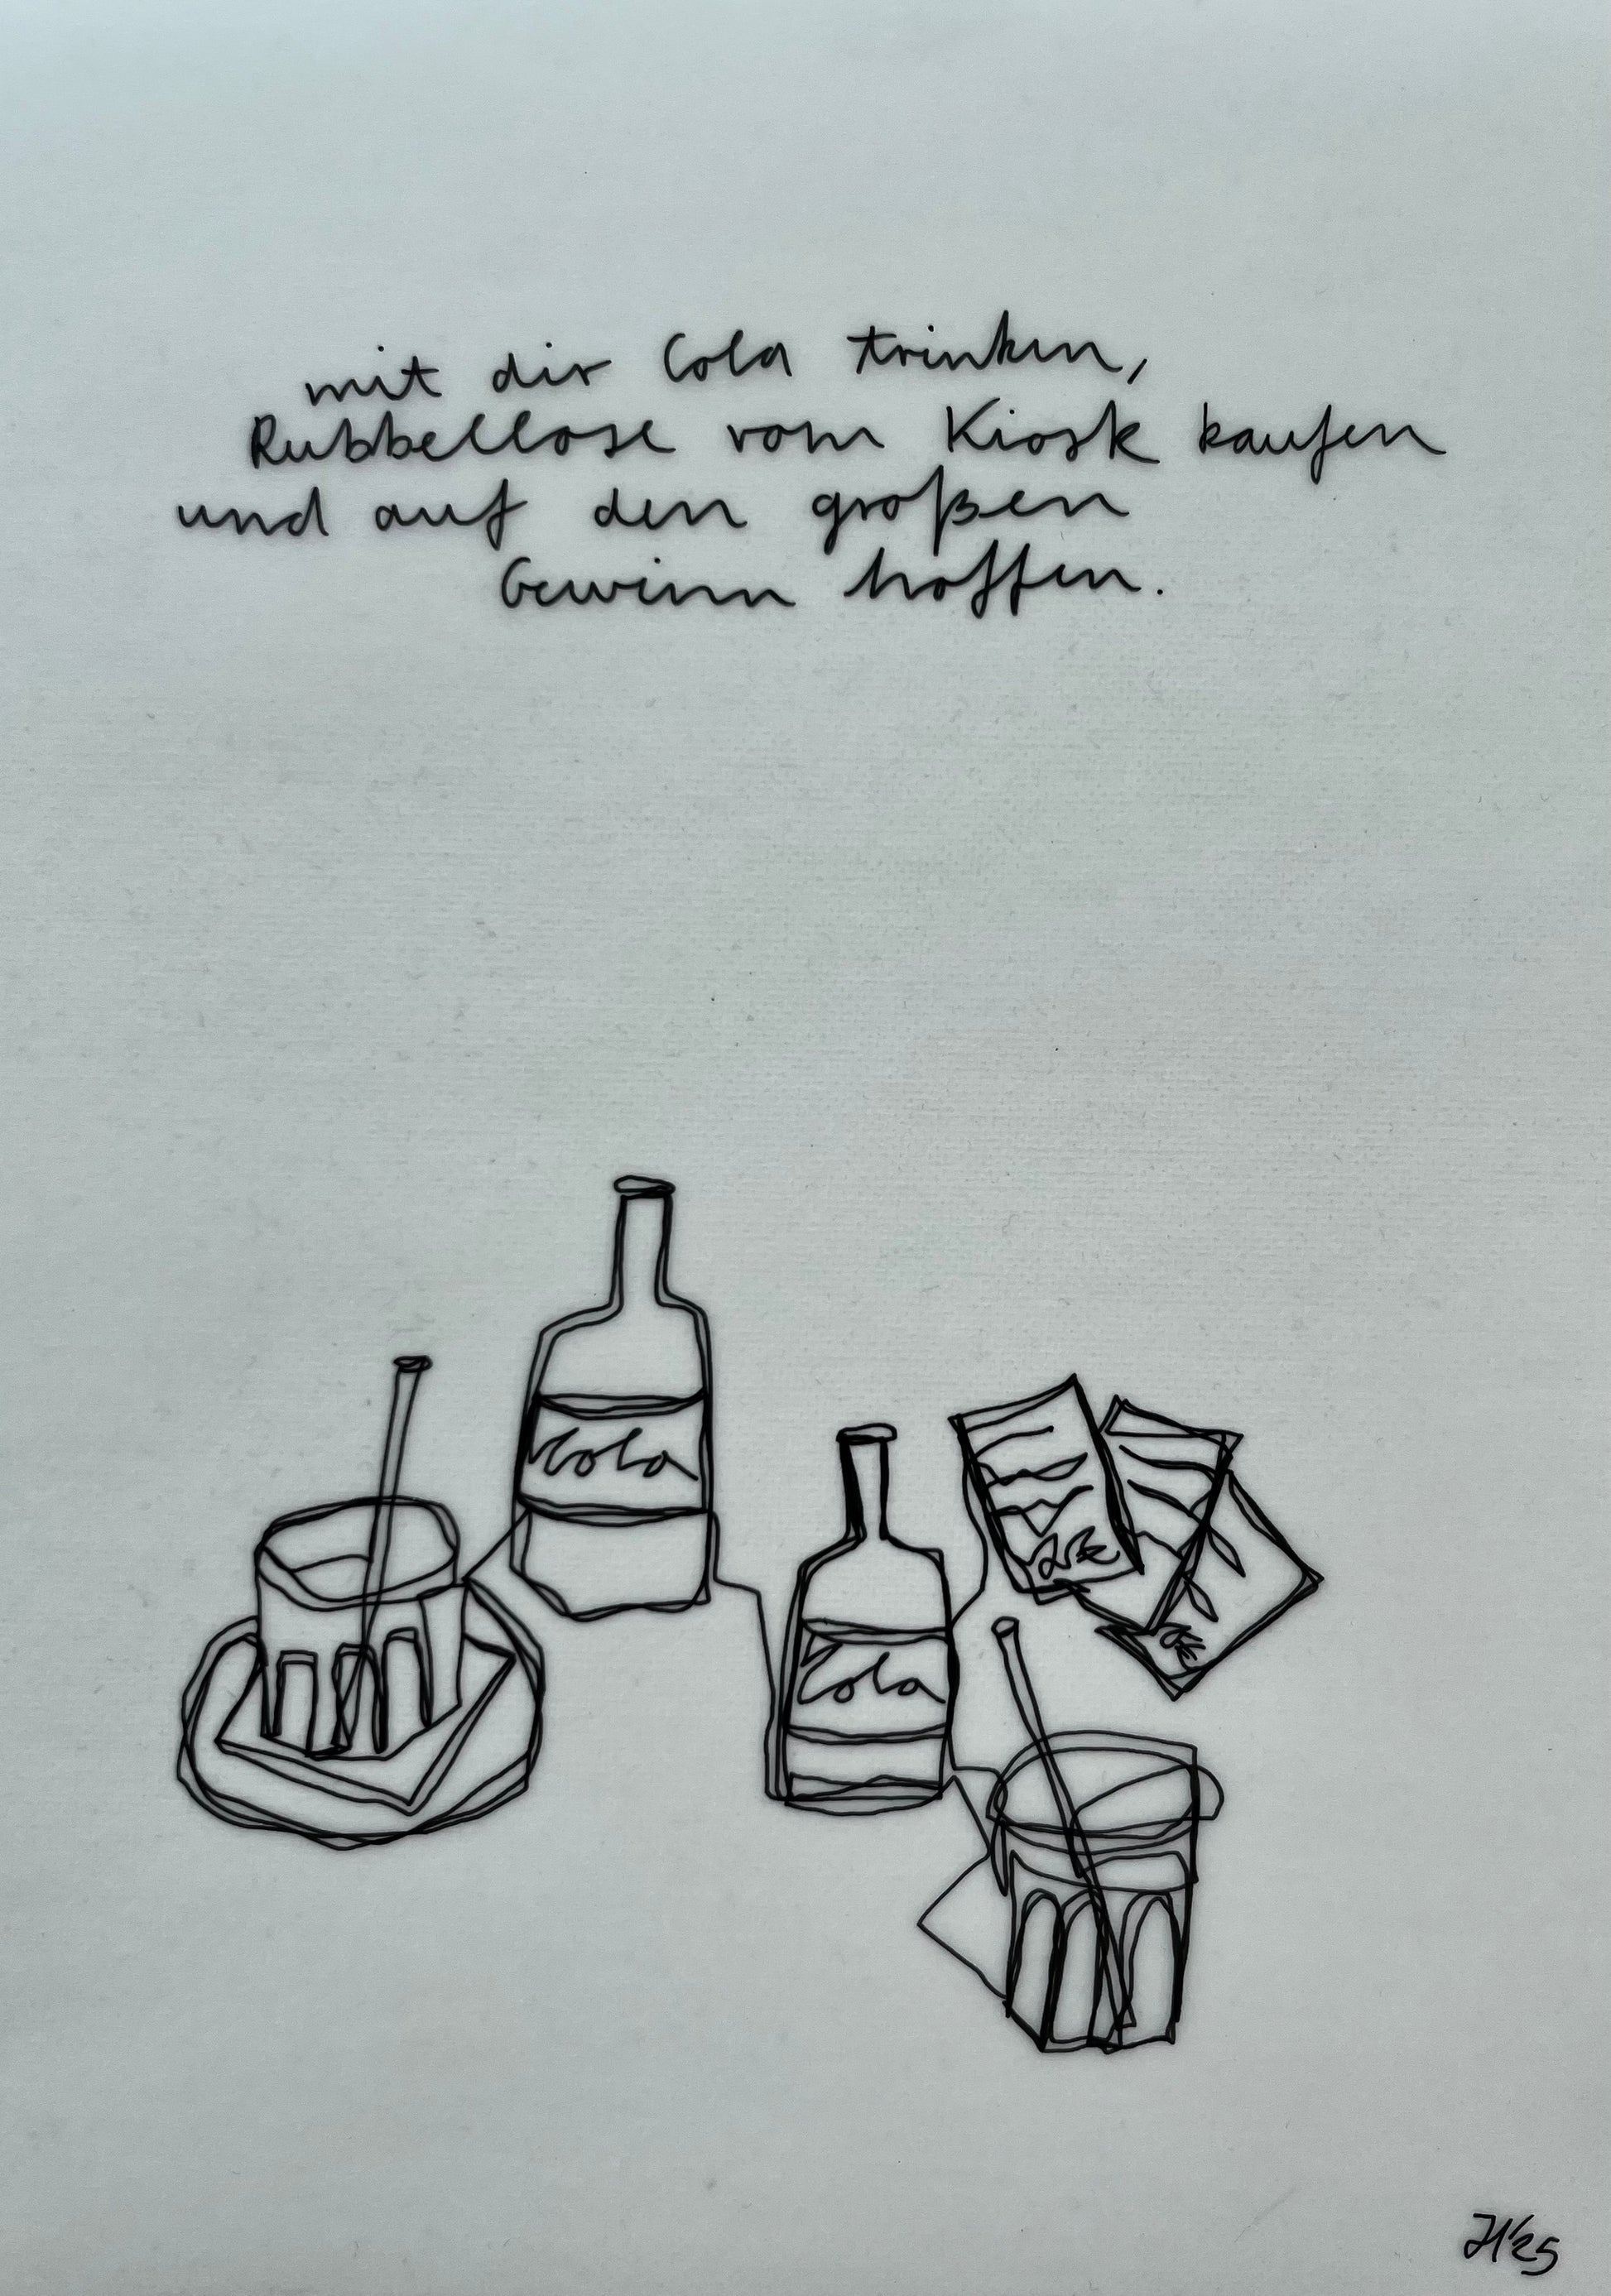 mit dir Cola trinken,
Rubbellose vom Kiosk kaufen
und auf den großen
Gewinn hoffen.
Cola
Cola
JH'25